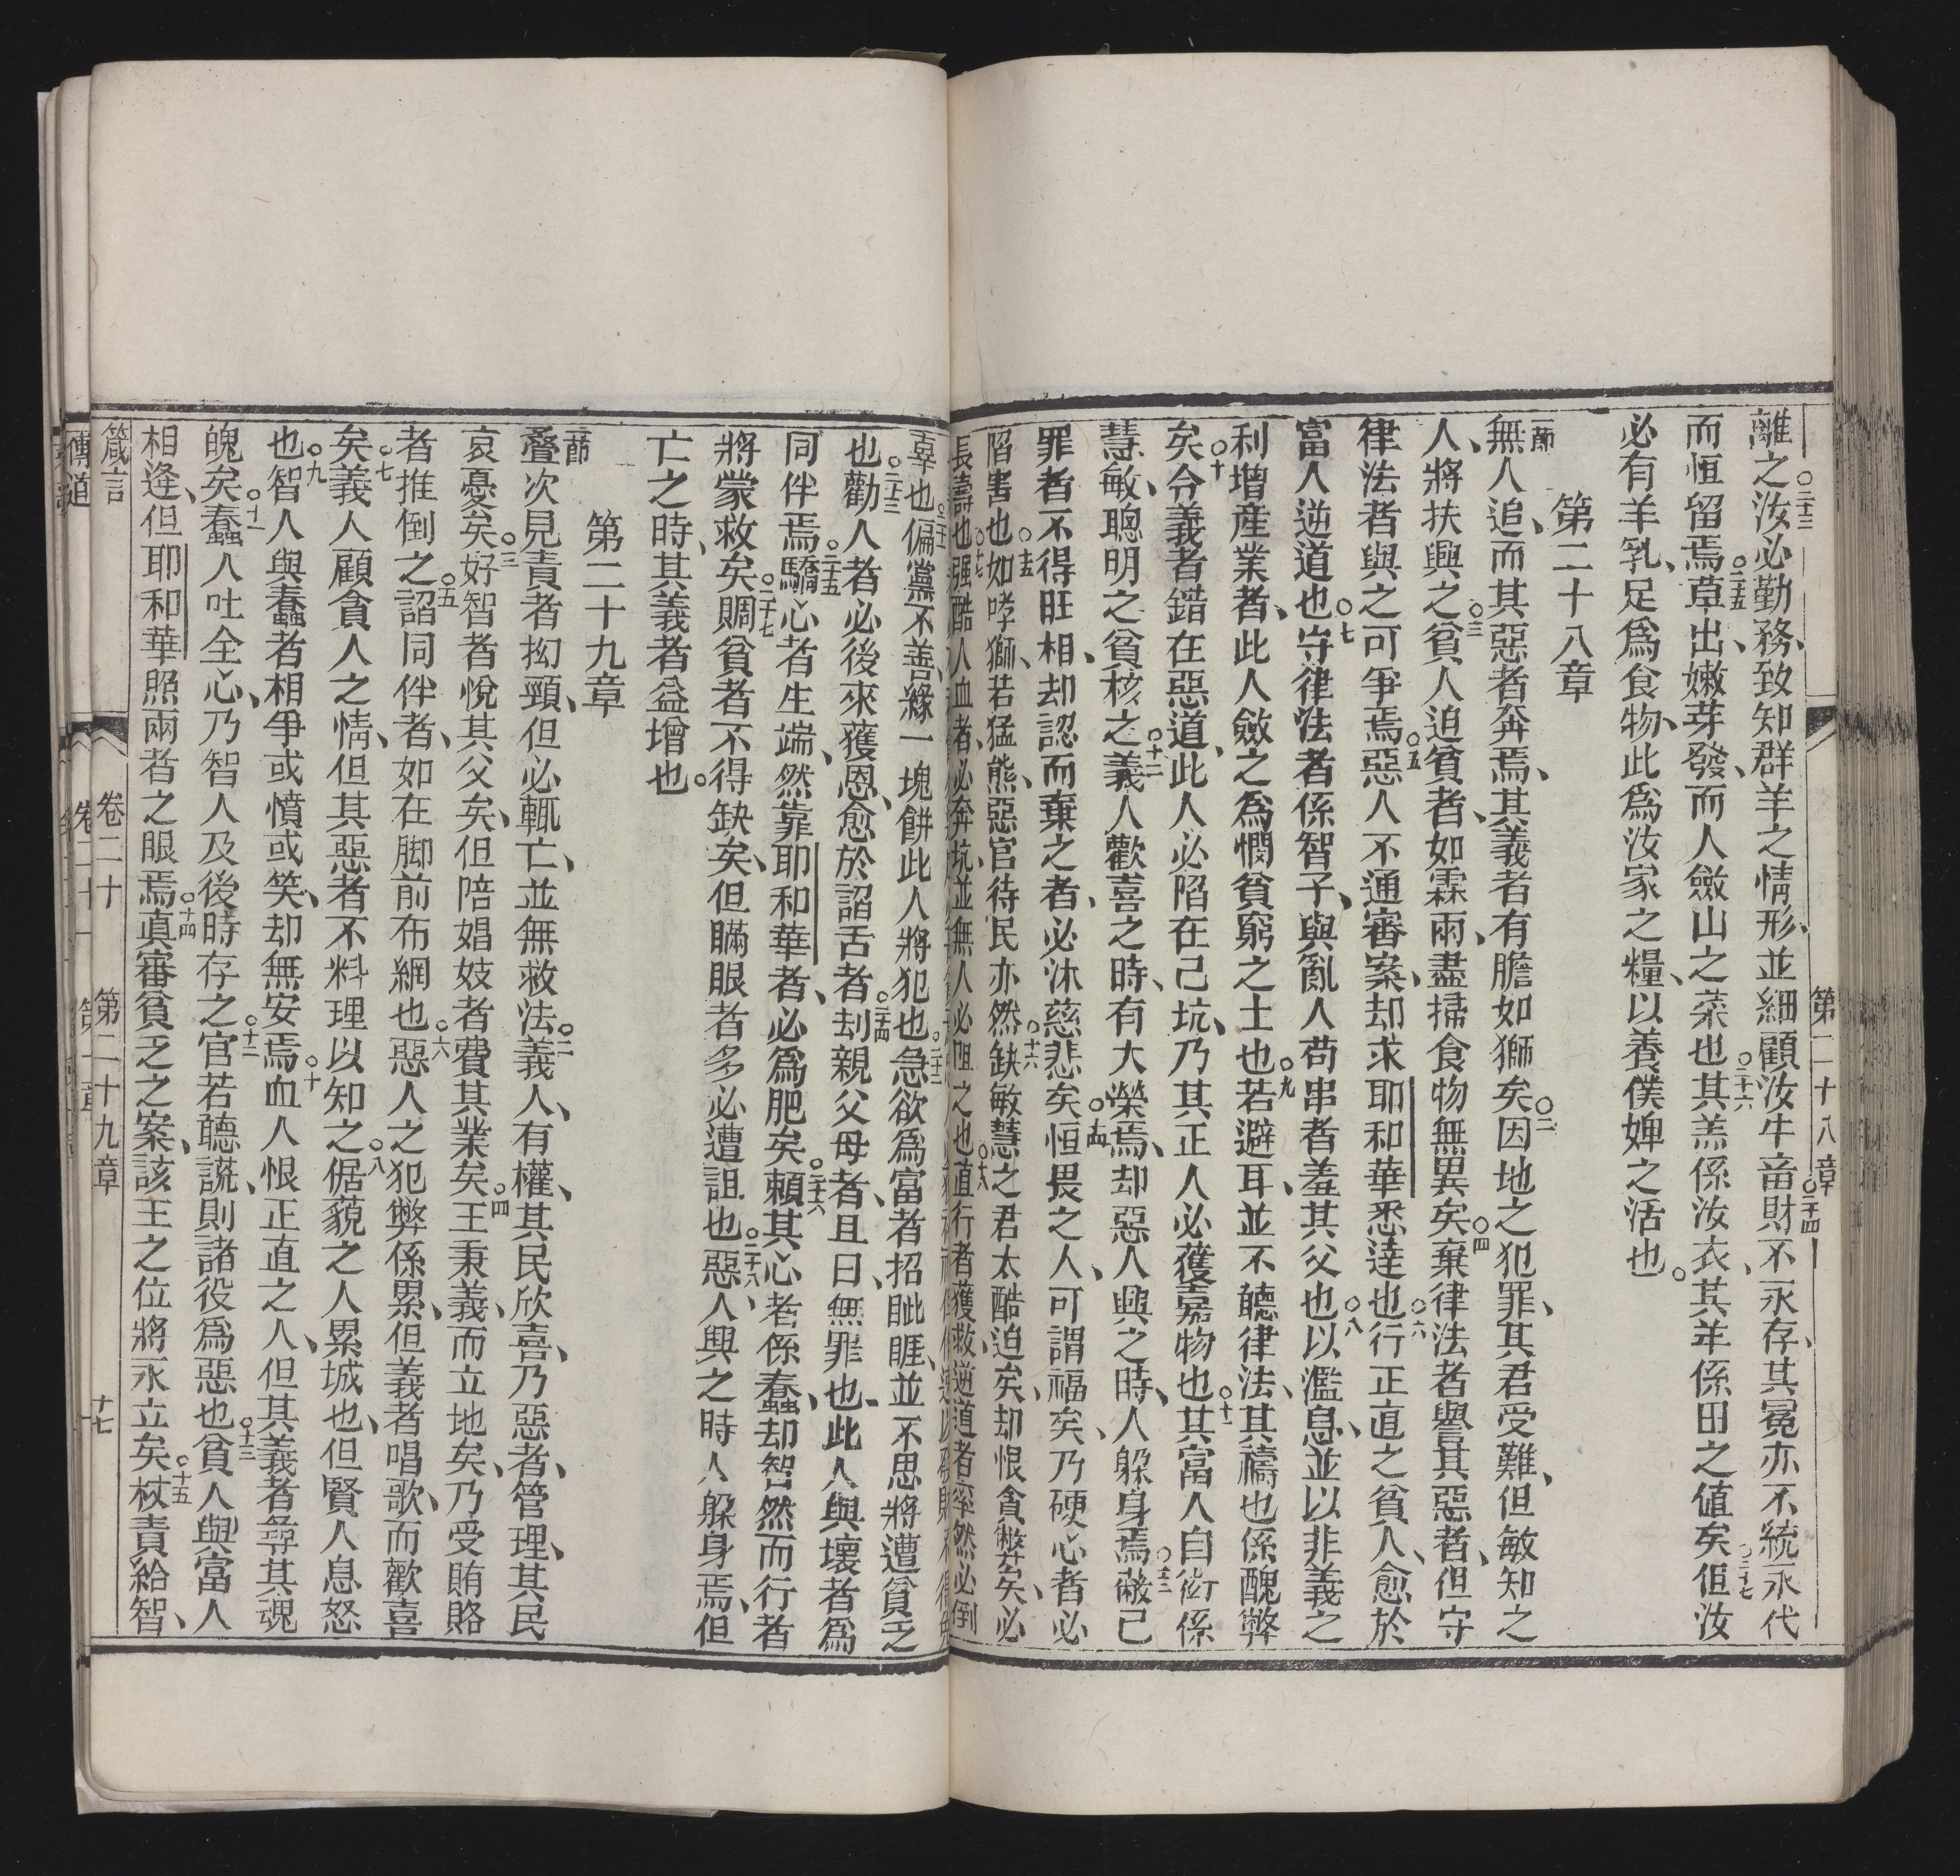 第二十八章
離之○二十三汝必勤務、致知群羊之情形、並細顧汝牛畜○二十四財不永存、其冕亦不統永代
而恒留焉○二十五草出、嫩芽發、而人斂山之菜也○二十六其羔係汝衣、其羊係田之值矣○二十七但汝
必有羊乳、足爲食物、此爲汝家之糧、以養僕婢之活也。
第二十八章
一節無人追、而其惡者奔焉、其義者有膽如獅矣○二因地之犯罪、其君受難、但敏知之
人、將扶興之○三貧人迫貧者、如霖雨、盡掃食物無異矣○四棄律法者譽其惡者、但守
律法者與之可爭焉○五惡人不通審案、却求耶和華悉達也○六行正直之貧人、愈於
富人逆道也○七守律法者係智子、與亂人苟串者羞其父也○八以濫息、並以非義之
利增產業者、此人斂之爲憫貧窮之士也○九若避耳、並不聽律法、其禱也係醜弊
矣○十令義者錯在惡道、此人必陷在己坑、乃其正人必獲嘉物也○十一其富人自衒係
慧敏、聰明之貧核之○十二義人歡喜之時、有大榮焉、却惡人興之時、人躲身焉○十三蔽己
罪者不得旺相、却認而棄之者、必沐慈悲矣○十四恒畏之人、可謂福矣、乃硬心者必
陷害也○十五如哮獅、若猛熊、惡官待民亦然○十六缺敏慧之君太酷迫矣、却恨貪弊矣、必
長壽也○十七強酷人血者、必奔坑、並無人必阻之也○十八直行者獲救、逆道者率然必倒
辜也○二十一偏黨不善、緣一塊餅此人將犯也○二十二急欲爲富者招眦睚、並不思將遭貧乏
也○二十三勸人者必後來獲恩、愈於諂舌者○二十四刦親父母者、且曰、無罪也、此人與壞者爲
同伴焉○二十五驕心者生端、然靠耶和華者、必爲肥矣○二十六賴其心者係蠢、却智然而行者
將蒙救矣○二十七賙貧者不得缺矣、但瞞眼者多必遭詛也○二十八惡人興之時人躲身焉、但
亡之時、其義者益增也。
第二十九章
一節叠次見責者拗頸、但必輒亡、並無救法○二義人、有權、其民欣喜、乃惡者、管理、其民
哀憂矣○三好智者悅其父矣、但陪娼妓者費其業矣○四王秉義、而立地矣、乃受賄賂
者推倒之○五諂同伴者、如在脚前布網也○六惡人之犯弊係累、但義者唱歌、而歡喜
矣○七義人顧貪人之情、但其惡者不料理以知之○八倨藐之人累城也、但賢人息怒
也○九智人與蠢者相爭或憤或笑、却無安焉○十血人恨正直之人、但其義者尋其魂
魄矣○十一蠢人吐全心、乃智人及後時存之○十二官若聽謊、則諸役爲惡也○十三貧人與富人
相逢、但耶和華照兩者之眼焉○十四眞審貧乏之案、該王之位將永立矣○十五杖責給智、
箴言 卷二十 第二十九章 十七
傳道 卷二十一 第一章